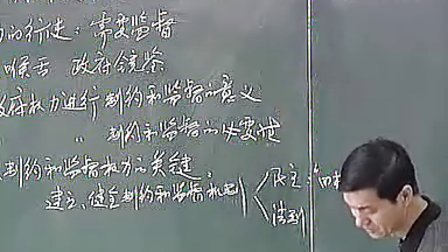 力的行走：需要监督
顺否 政府
政府权力进行制约和监督的意义
〃 制约和监督的必要性
制约和监督权力的关键：
建立、健全制约和监督机制
民主：
法制